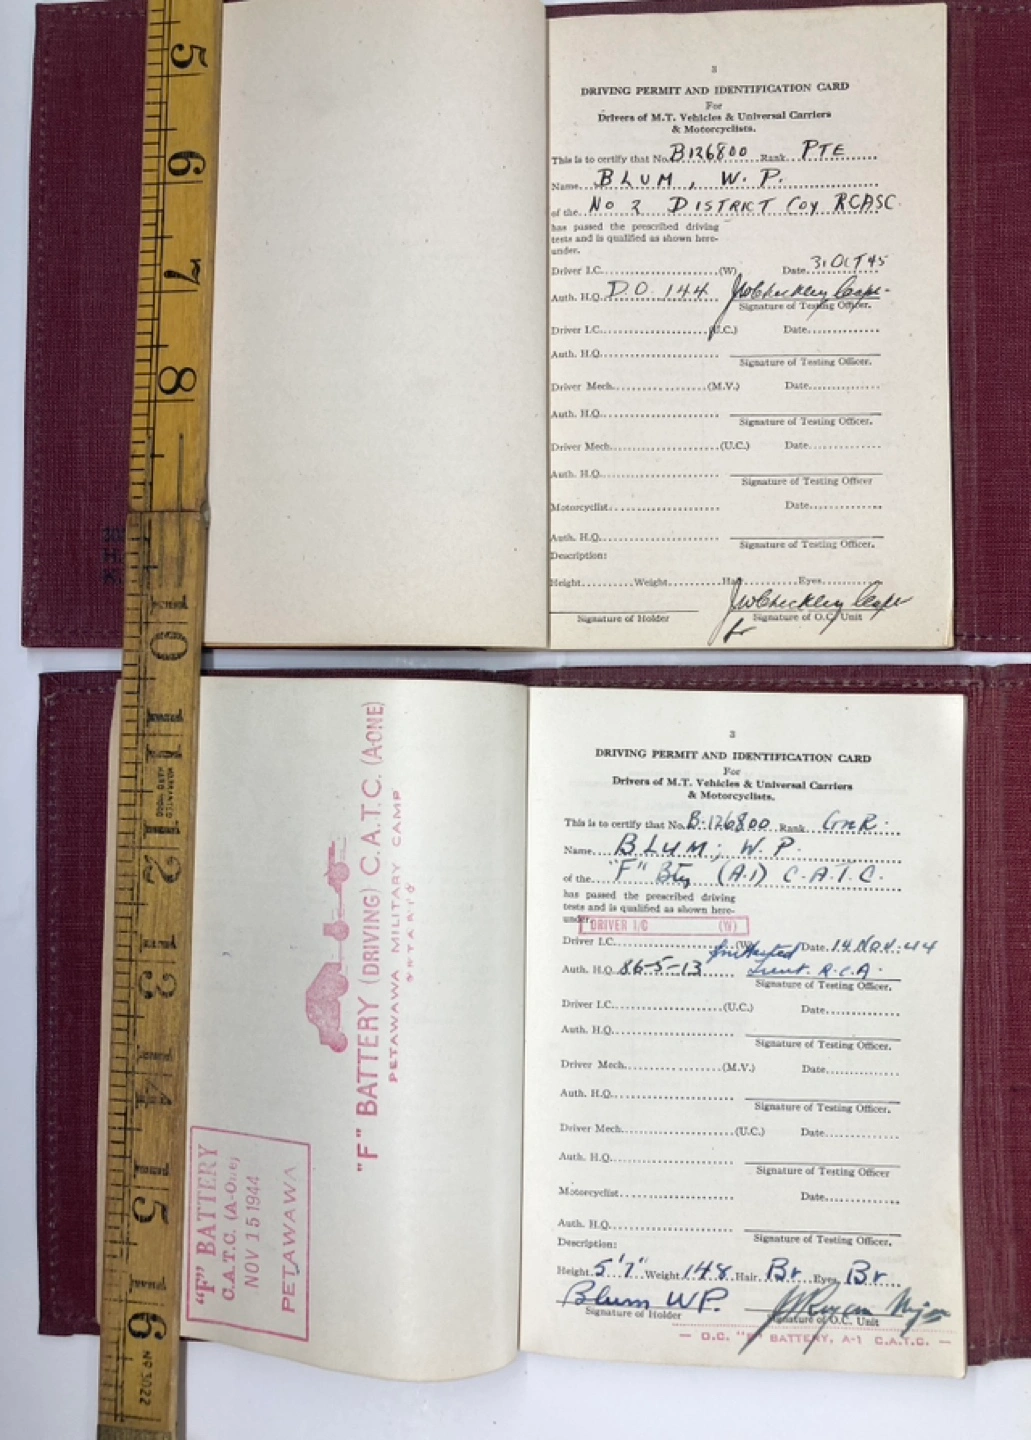 3
DRIVING PERMIT AND IDENTIFICATION CARD
For
Drivers of M.T. Vehicles & Universal Carriers
& Motorcyclists.
This is to certify that No. B126800 Rank PTE
Name BLUM, W. P.
of the No 2 DISTRICT Coy RCASC.
has passed the prescribed driving
tests and is qualified as shown here-
under.
Driver I.C. (W) Date 31 OCT 45
Auth. H.Q. D.O. 144 JWCheckley Capt.
Signature of Testing Officer.
Driver I.C. (U.C.) Date
Auth. H.Q.
Signature of Testing Officer.
Driver Mech. (M.V.) Date
Auth. H.Q.
Signature of Testing Officer.
Driver Mech. (U.C.) Date
Auth. H.Q.
Signature of Testing Officer
Motorcyclist. Date
Auth. H.Q.
Signature of Testing Officer.
Description:
Height Weight Hair Eyes
JWCheckley Capt
Signature of Holder Signature of O.C. Unit
for
3
DRIVING PERMIT AND IDENTIFICATION CARD
For
Drivers of M.T. Vehicles & Universal Carriers
& Motorcyclists.
This is to certify that No. B-126800 Rank GNR.
Name BLUM; W. P.
of the "F" Bty (A.1) C.A.T.C.
has passed the prescribed driving
tests and is qualified as shown here-
under.
DRIVER I/C (W)
Driver I.C. (W) Date 14 NOV. 44
Auth. H.Q. 86-5-13 Lieut. R.C.A.
Signature of Testing Officer.
Driver I.C. (U.C.) Date
Auth. H.Q.
Signature of Testing Officer.
Driver Mech. (M.V.) Date
Auth. H.Q.
Signature of Testing Officer.
Driver Mech. (U.C.) Date
Auth. H.Q.
Signature of Testing Officer
Motorcyclist Date
Auth. H.Q.
Signature of Testing Officer.
Description:
Height 5'7" Weight 148 Hair Br Eyes Br
Blum WP. Major
Signature of Holder Signature of O.C. Unit
— O.C. "F" BATTERY, A-1 C.A.T.C. —
"F" BATTERY (DRIVING) C.A.T.C. (A-ONE)
PETAWAWA MILITARY CAMP
ONTARIO
"F" BATTERY
C.A.T.C. (A-One)
NOV 15 1944
PETAWAWA
5
6
7
8
10
11
12
13
14
15
16
Nº 3022